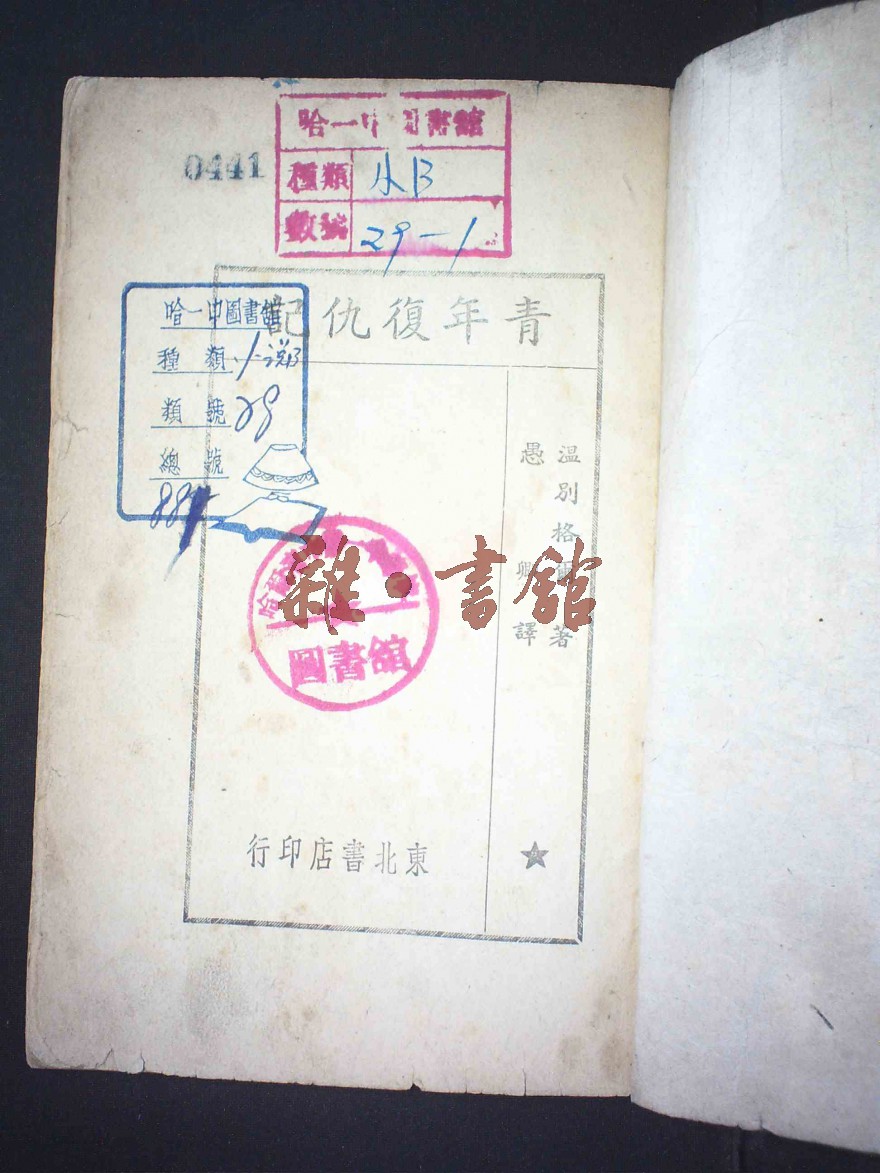 0441
哈一中圖書館
種類 小B
數號 29-1
哈一中圖書館
種類 小說B
類號 29
總號
青年復仇記
溫別格爾 著
愚卿 譯
雜·書館
圖書舘
★
東北書店印行